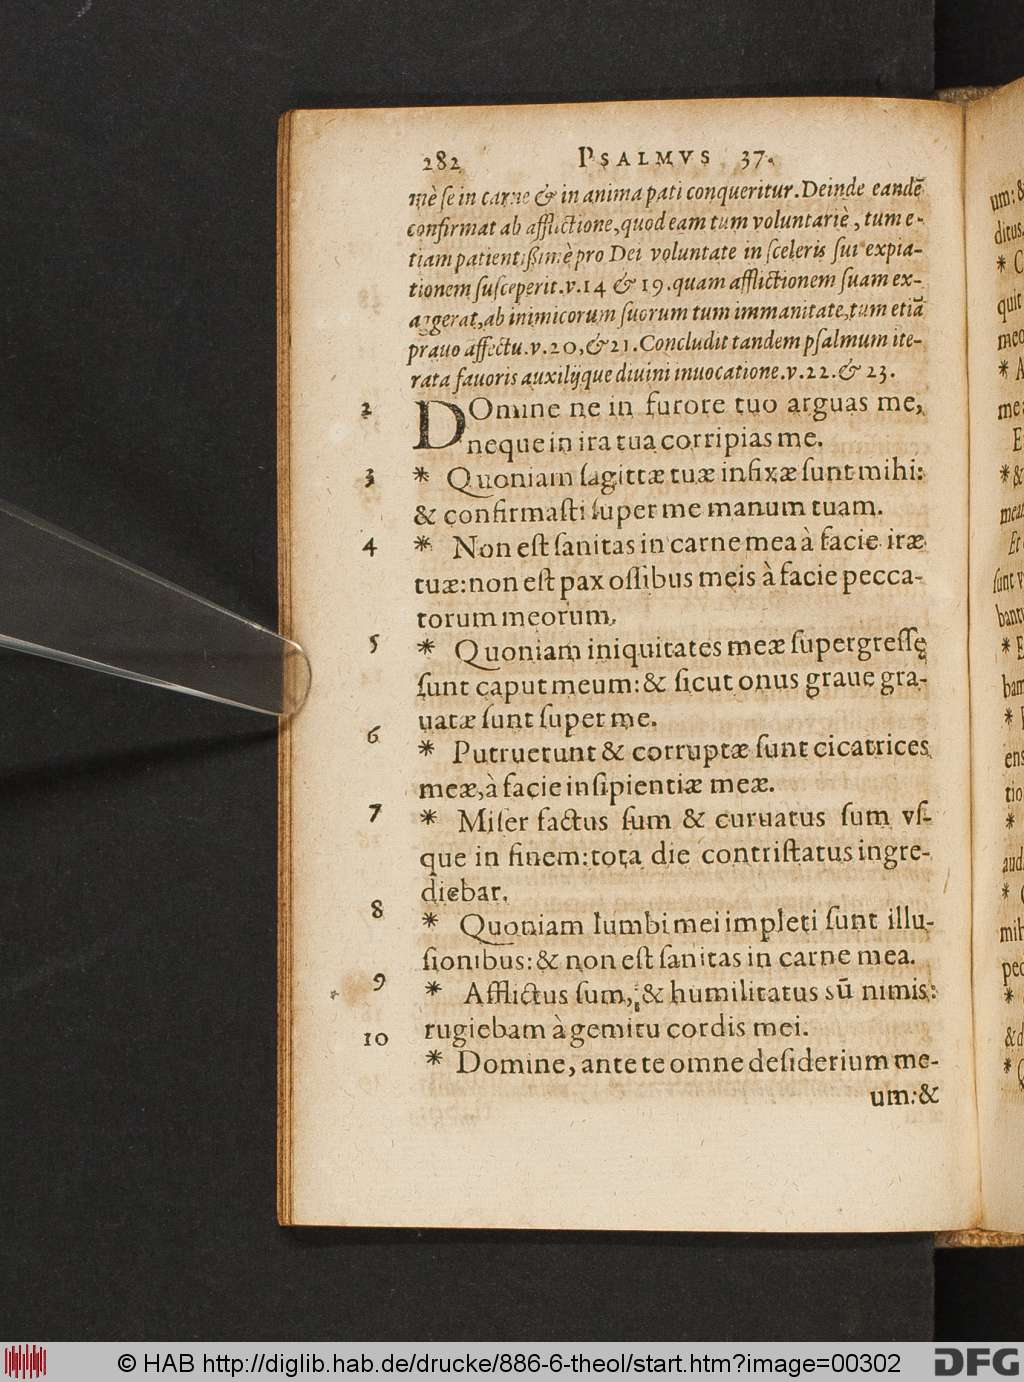 282 PSALMVS 37.
mè ſe in carne & in anima pati conqueritur. Deinde eandē
confirmat ab afflictione, quod eam tum voluntariè, tum e-
tiam patientißimè pro Dei voluntate in ſceleris ſui expia-
tionem ſuſceperit. v. 14 & 19. quam afflictionem ſuam ex-
aggerat, ab inimicorum ſuorum tum immanitate, tum etiā
prauo affectu. v. 20, & 21. Concludit tandem pſalmum ite-
rata fauoris auxilijque diuini inuocatione. v. 22. & 23.
2 DOmine ne in furore tuo arguas me,
neque in ira tua corripias me.
3 * Quoniam ſagittæ tuæ infixæ ſunt mihi:
& confirmaſti ſuper me manum tuam.
4 * Non eſt ſanitas in carne mea à facie iræ
tuæ: non eſt pax oſſibus meis à facie pecca-
torum meorum.
5 * Quoniam iniquitates meæ ſupergreſſę
ſunt caput meum: & ſicut onus graue gra-
uatæ ſunt ſuper me.
6 * Putruerunt & corruptæ ſunt cicatrices
meæ, à facie inſipientiæ meæ.
7 * Miſer factus ſum & curuatus ſum vſ-
que in finem: tota die contriſtatus ingre-
diebar.
8 * Quoniam lumbi mei impleti ſunt illu-
ſionibus: & non eſt ſanitas in carne mea.
9 * Afflictus ſum, & humilitatus sū nimis:
rugiebam à gemitu cordis mei.
10 * Domine, ante te omne deſiderium me-
um: &
um: &
ditus
quit
meo
mea
&
mea
Et
ſunt
bam
tio
aud
mih
© HAB http://diglib.hab.de/drucke/886-6-theol/start.htm?image=00302 DFG